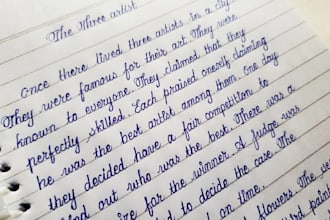 The three artist
Once there lived three artists in a city.
They were famous for their art. They were
known to everyone. They claimed that they
perfectly skilled. Each praised oneself, claiming
he was the best artist among them. One day
they decided have a fair competition to
find out who was the best. There was a
for the winner. A judge was
to decide the case. The
on time.
flowers. The